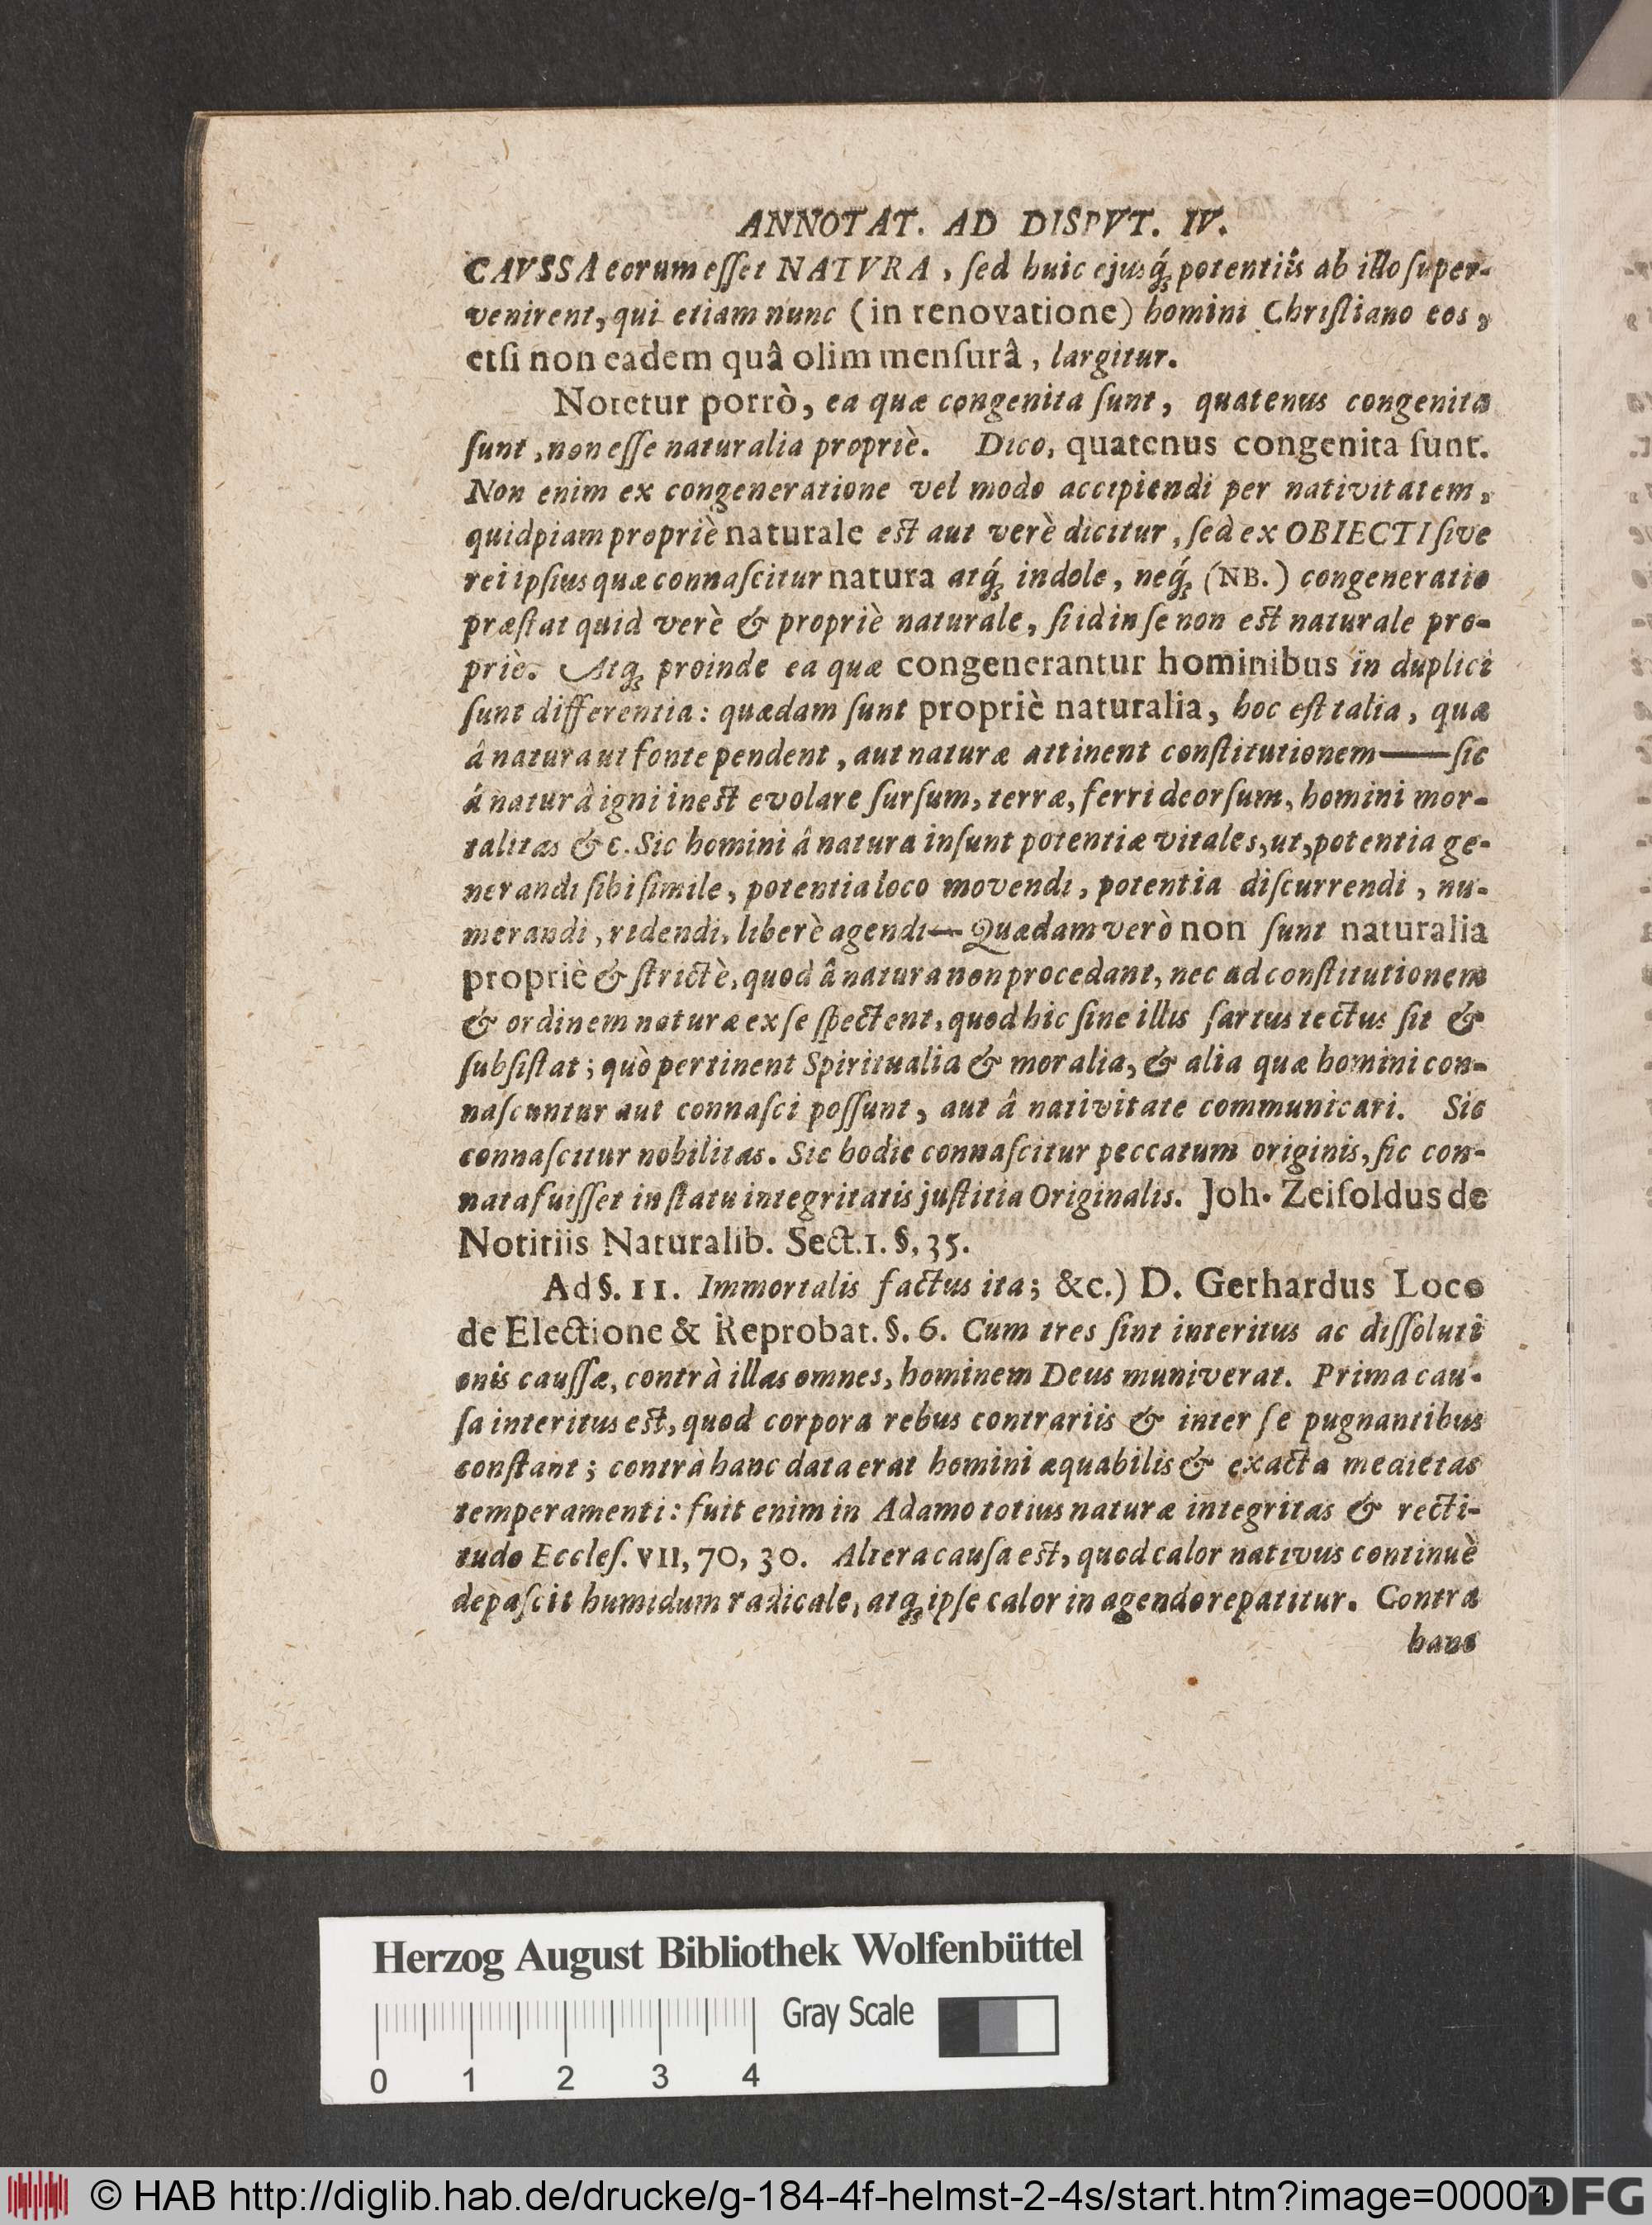 ANNOTAT. AD DISPVT. IV.
CAVSSA eorum eſſet NATVRA, ſed huic ejusq́; potentiis ab illo ſuper-
venirent, qui etiam nunc (in renovatione) homini Chriſtiano eos,
etſi non eadem quâ olim menſurâ, largitur.
Notetur porrò, ea quæ congenita ſunt, quatenus congenita
ſunt, non eſſe naturalia propriè. Dico, quatenus congenita ſunt.
Non enim ex congeneratione vel modo accipiendi per nativitatem,
quidpiam propriè naturale est aut verè dicitur, ſed ex OBIECTI ſive
rei ipſius quæ connaſcitur natura atq́; indole, neq́; (NB.) congeneratio
præſtat quid verè & propriè naturale, ſi id in ſe non est naturale pro-
priè. Atq; proinde ea quæ congenerantur hominibus in duplici
ſunt differentia: quædam ſunt propriè naturalia, hoc eſt talia, quæ
â natura ut fonte pendent, aut naturæ attinent conſtitutionem—— ſic
á naturâ igni inest evolare ſurſum, terræ, ferri deorſum, homini mor-
talitas &c. Sic homini â natura inſunt potentiæ vitales, ut, potentia ge-
nerandi ſibi ſimile, potentia loco movendi, potentia diſcurrendi, nu-
merandi, ridendi, liberè agendi— Quædam verò non ſunt naturalia
propriè & ſtrictè, quod â natura non procedant, nec ad conſtitutionem
& ordinem naturæ ex ſe ſpectent, quod hic ſine illis ſartus tectus ſit &
ſubſiſtat; quò pertinent Spiritualia & moralia, & alia quæ homini con-
naſcuntur aut connaſci poſſunt, aut â nativitate communicari. Sic
connaſcitur nobilitas. Sic hodie connaſcitur peccatum originis, ſic con-
nata fuiſſet in ſtatu integritatis juſtitia Originalis. Joh. Zeiſoldus de
Notitiis Naturalib. Sect. 1. §, 35.
Ad §. 11. Immortalis factus ita; &c.) D. Gerhardus Loco
de Electione & Reprobat. §. 6. Cum tres ſint interitus ac diſſoluti
onis cauſſæ, contrà illas omnes, hominem Deus muniverat. Prima cau-
ſa interitus est, quod corpora rebus contrariis & inter ſe pugnantibus
conſtant; contrà hanc data erat homini æquabilis & exacta medietas
temperamenti: fuit enim in Adamo totius naturæ integritas & recti-
tudo Eccleſ. VII, 70, 30. Altera cauſa est, quod calor nativus continuè
depaſcit humidum radicale, atq; ipſe calor in agendo repatitur. Contra
hanc
Herzog August Bibliothek Wolfenbüttel
Gray Scale
0 1 2 3 4
© HAB http://diglib.hab.de/drucke/g-184-4f-helmst-2-4s/start.htm?image=00004
DFG